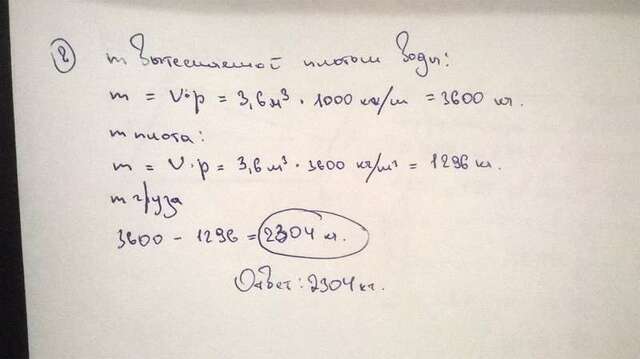 2 m вытесняемой плотом воды:
m = V·ρ = 3,6 м³ · 1000 кг/м = 3600 кг.
m плота:
m = V·ρ = 3,6 м³ · 3600 кг/м³ = 1296 кг.
m груза
3600 - 1296 = 2304 кг.
Ответ: 2304 кг.